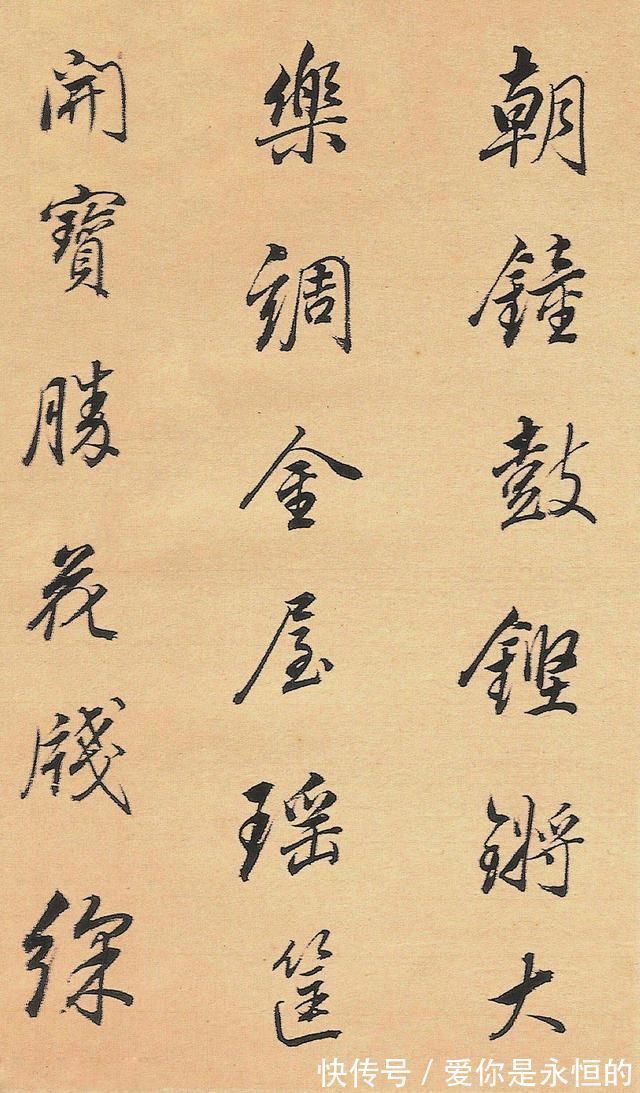 朝鐘鼓鏗鏘大
樂調金屋瑶筐
開寶勝花牋綵
快传号/爱你是永恒的